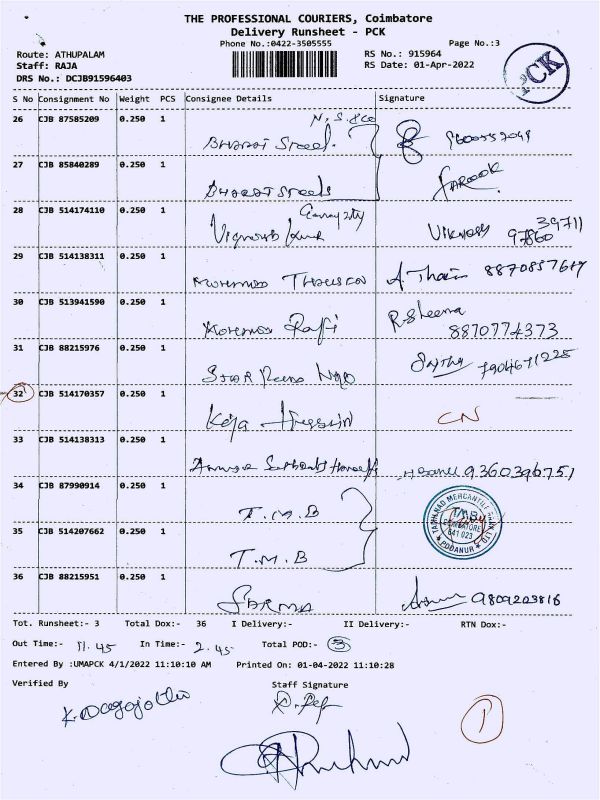 THE PROFESSIONAL COURIERS, Coimbatore
Delivery Runsheet - PCK
Phone No.:0422-3505555 Page No.:3
Route: ATHUPALAM RS No.: 915964
Staff: RAJA RS Date: 01-Apr-2022
DRS No.: DCJB91596403
PCK
S No Consignment No Weight PCS Consignee Details Signature
26 CJB 87585209 0.250 1 Bharat Steel.
27 CJB 85840289 0.250 1 Bharat Steels Farook
28 CJB 514174110 0.250 1 Vignesh 39711 97860
29 CJB 514138311 0.250 1 Mohemed
30 CJB 513941590 0.250 1 Mohemed Rafi R.Sheema
8870774373
31 CJB 88215976 0.250 1 Star 7904671225
32 CJB 514170357 0.250 1 Koja Hussain CN
33 CJB 514138313 0.250 1 9360396751
34 CJB 87990914 0.250 1 T.M.B
TAMILNAD MERCANTILE BANK LTD. T.M.B COIMBATORE 641 023 PODANUR
35 CJB 514207662 0.250 1 T.M.B
36 CJB 88215951 0.250 1 Sarma 9809223816
Tot. Runsheet:- 3 Total Dox:- 36 I Delivery:- II Delivery:- RTN Dox:-
Out Time:- 11.45 In Time:- 2.45 Total POD:- 3
Entered By :UMAPCK 4/1/2022 11:10:10 AM Printed On: 01-04-2022 11:10:28
Verified By Staff Signature
1